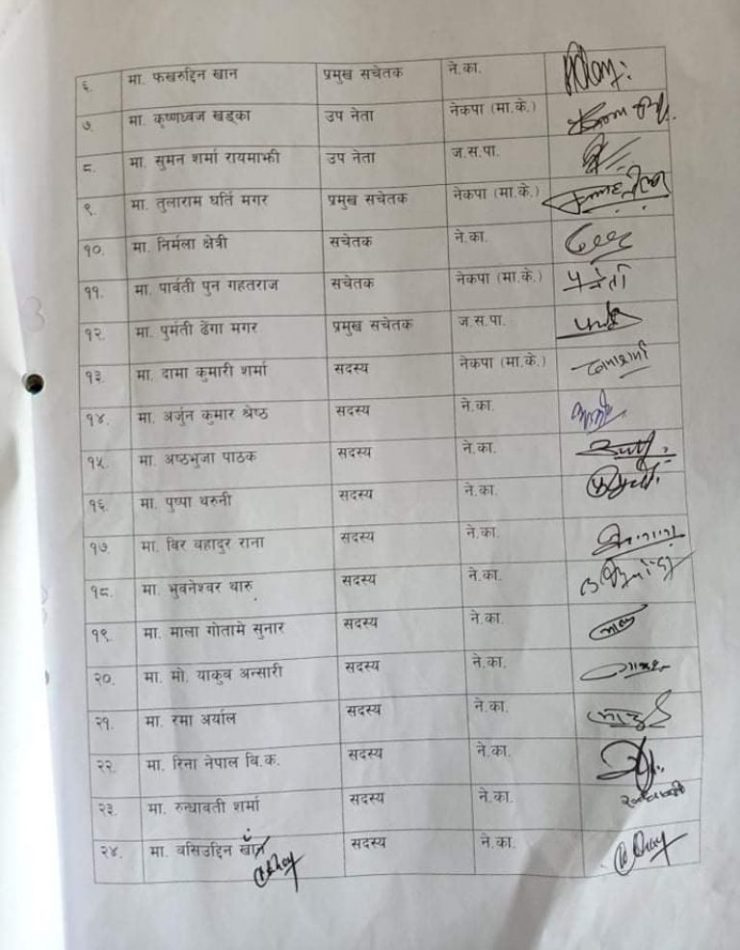 ६. मा. फखरुद्दिन खान प्रमुख सचेतक ने.का.
७. मा. कृष्णध्वज खड्का उप नेता नेकपा (मा.के.)
८. मा. सुमन शर्मा रायमाझी उप नेता ज.स.पा.
९. मा. तुलाराम घर्ति मगर प्रमुख सचेतक नेकपा (मा.के.)
१०. मा. निर्मला क्षेत्री सचेतक ने.का.
११. मा. पार्वती पुन गहतराज सचेतक नेकपा (मा.के.)
१२. मा. पुमंती ढेंगा मगर प्रमुख सचेतक ज.स.पा.
१३. मा. दामा कुमारी शर्मा सदस्य नेकपा (मा.के.)
१४. मा. अर्जुन कुमार श्रेष्ठ सदस्य ने.का.
१५. मा. अष्ठभुजा पाठक सदस्य ने.का.
१६. मा. पुष्पा थरुनी सदस्य ने.का.
१७. मा. बिर बहादुर राना सदस्य ने.का.
१८. मा. भुवनेश्वर थारु सदस्य ने.का.
१९. मा. माला गोतामे सुनार सदस्य ने.का.
२०. मा. मो. याकुब अन्सारी सदस्य ने.का.
२१. मा. रमा अर्याल सदस्य ने.का.
२२. मा. रिना नेपाल बि.क. सदस्य ने.का.
२३. मा. रुन्धावती शर्मा सदस्य ने.का.
२४. मा. वसिउद्दिन खाँन सदस्य ने.का.